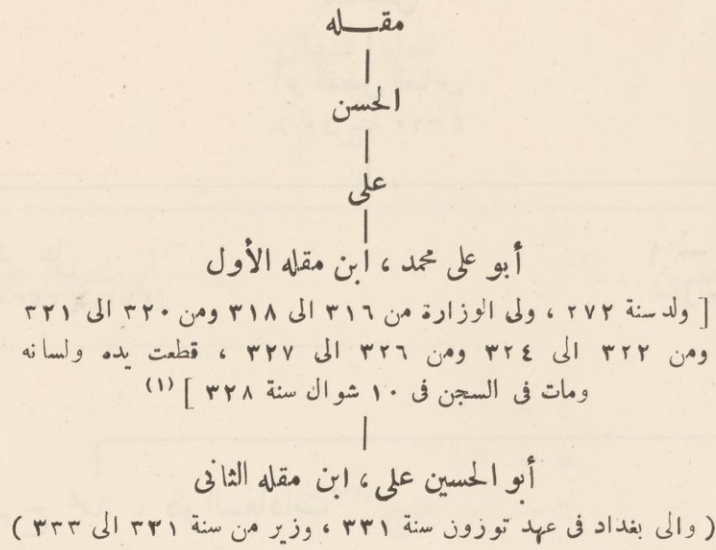 مقـله
الحسن
على
أبو على محمد ، ابن مقله الأول
[ ولد سنة ٢٧٢ ، ولى الوزارة من ٣١٦ الى ٣١٨ ومن ٣٢٠ الى ٣٢١
ومن ٣٢٢ الى ٣٢٤ ومن ٣٢٦ الى ٣٢٧ ، قطعت يده ولسانه
ومات فى السجن فى ١٠ شوال سنة ٣٢٨ ] (١)
أبو الحسين على ، ابن مقله الثانى
( والى بغداد فى عهد توزون سنة ٣٣١ ، وزير من سنة ٣٣١ الى ٣٣٣ )